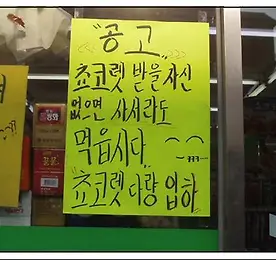 <<"공고">>
쵸코렛 받을 자신
없으면 사서라도
먹읍시다. ㅡㅡ
쵸코렛 다량 입하